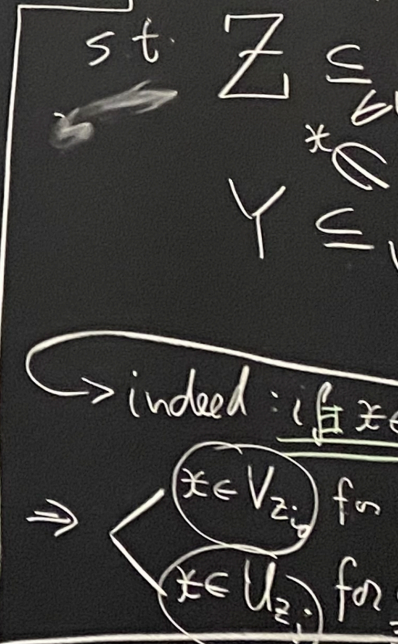 s.t. Z ⊆
x ∈
Y ⊆
↳ indeed : if ∃ x ∈
⇒ x ∈ V_{z_{i_0}} for
x ∈ U_{z_i} for